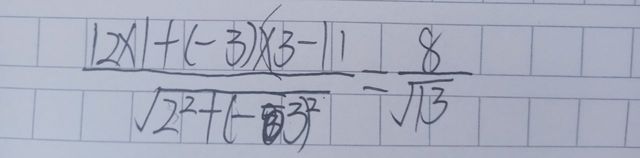 |2×1+(-3)×3-1|
/√(2²+(-3)²) = 8/√13